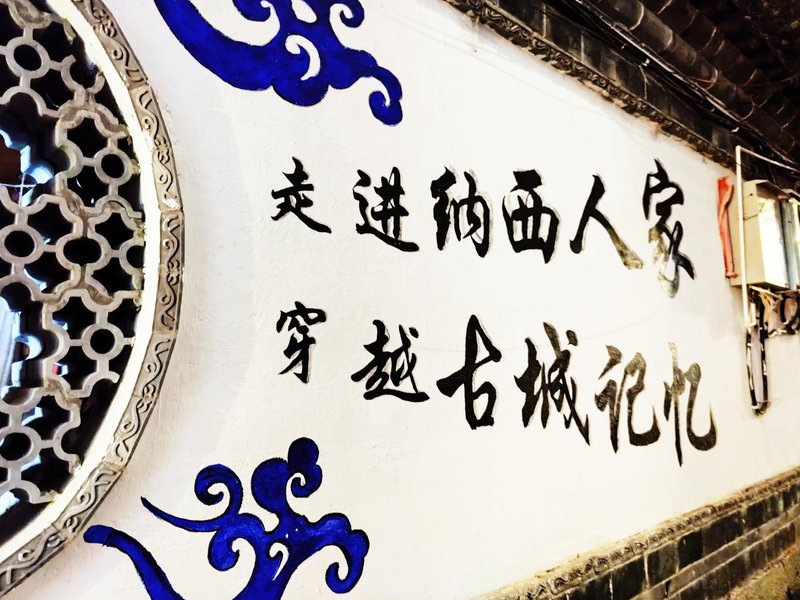 走进纳西人家
穿越古城记忆